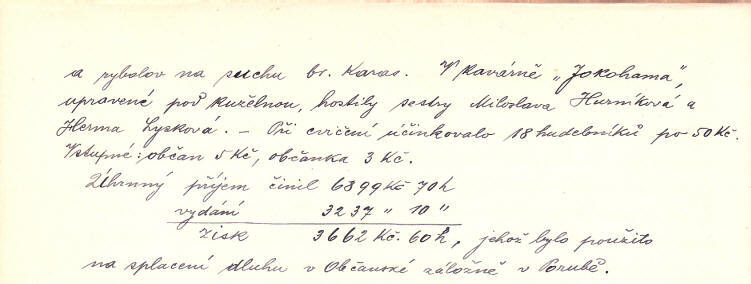 a rybolov na suchu br. Karas. V kavárně „Jokohama“,
upravené pod kuželnou, hostily sestry Miloslava Hurníková a
Herma Lysková. – Při cvičení účinkovalo 18 hudebníků po 50 Kč.
Vstupné: občan 5 Kč, občanka 3 Kč.
Úhrnný příjem činil 6899 Kč 70 h
vydání 3237 „ 10 „
zisk 3662 Kč. 60 h, jehož bylo použito
na splacení dluhu v Občanské záložně v Porubě.